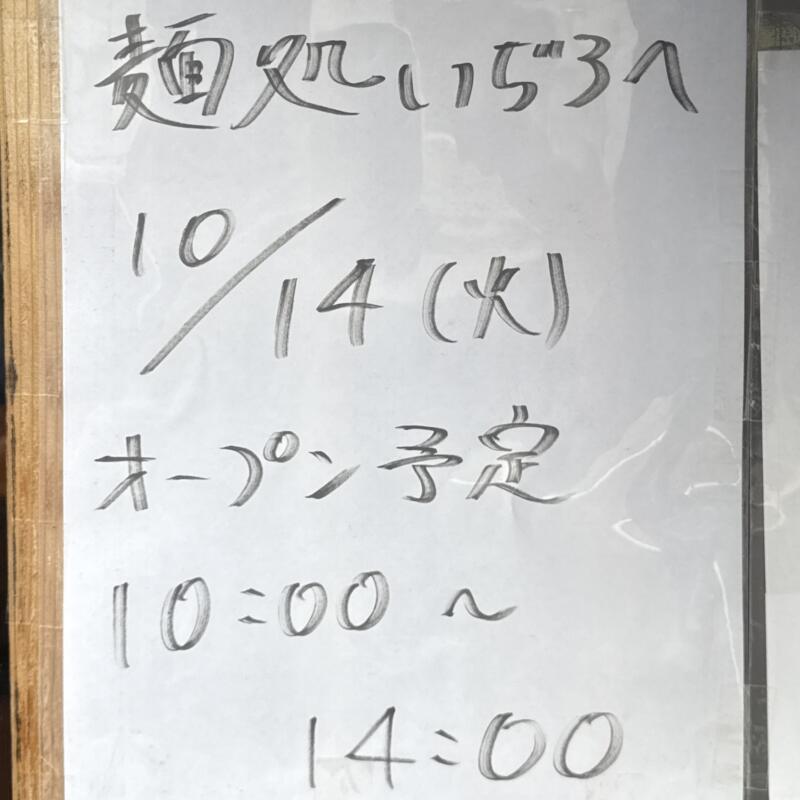 麺処いぢろへ
10/14(火)
オープン予定
10:00～
14:00